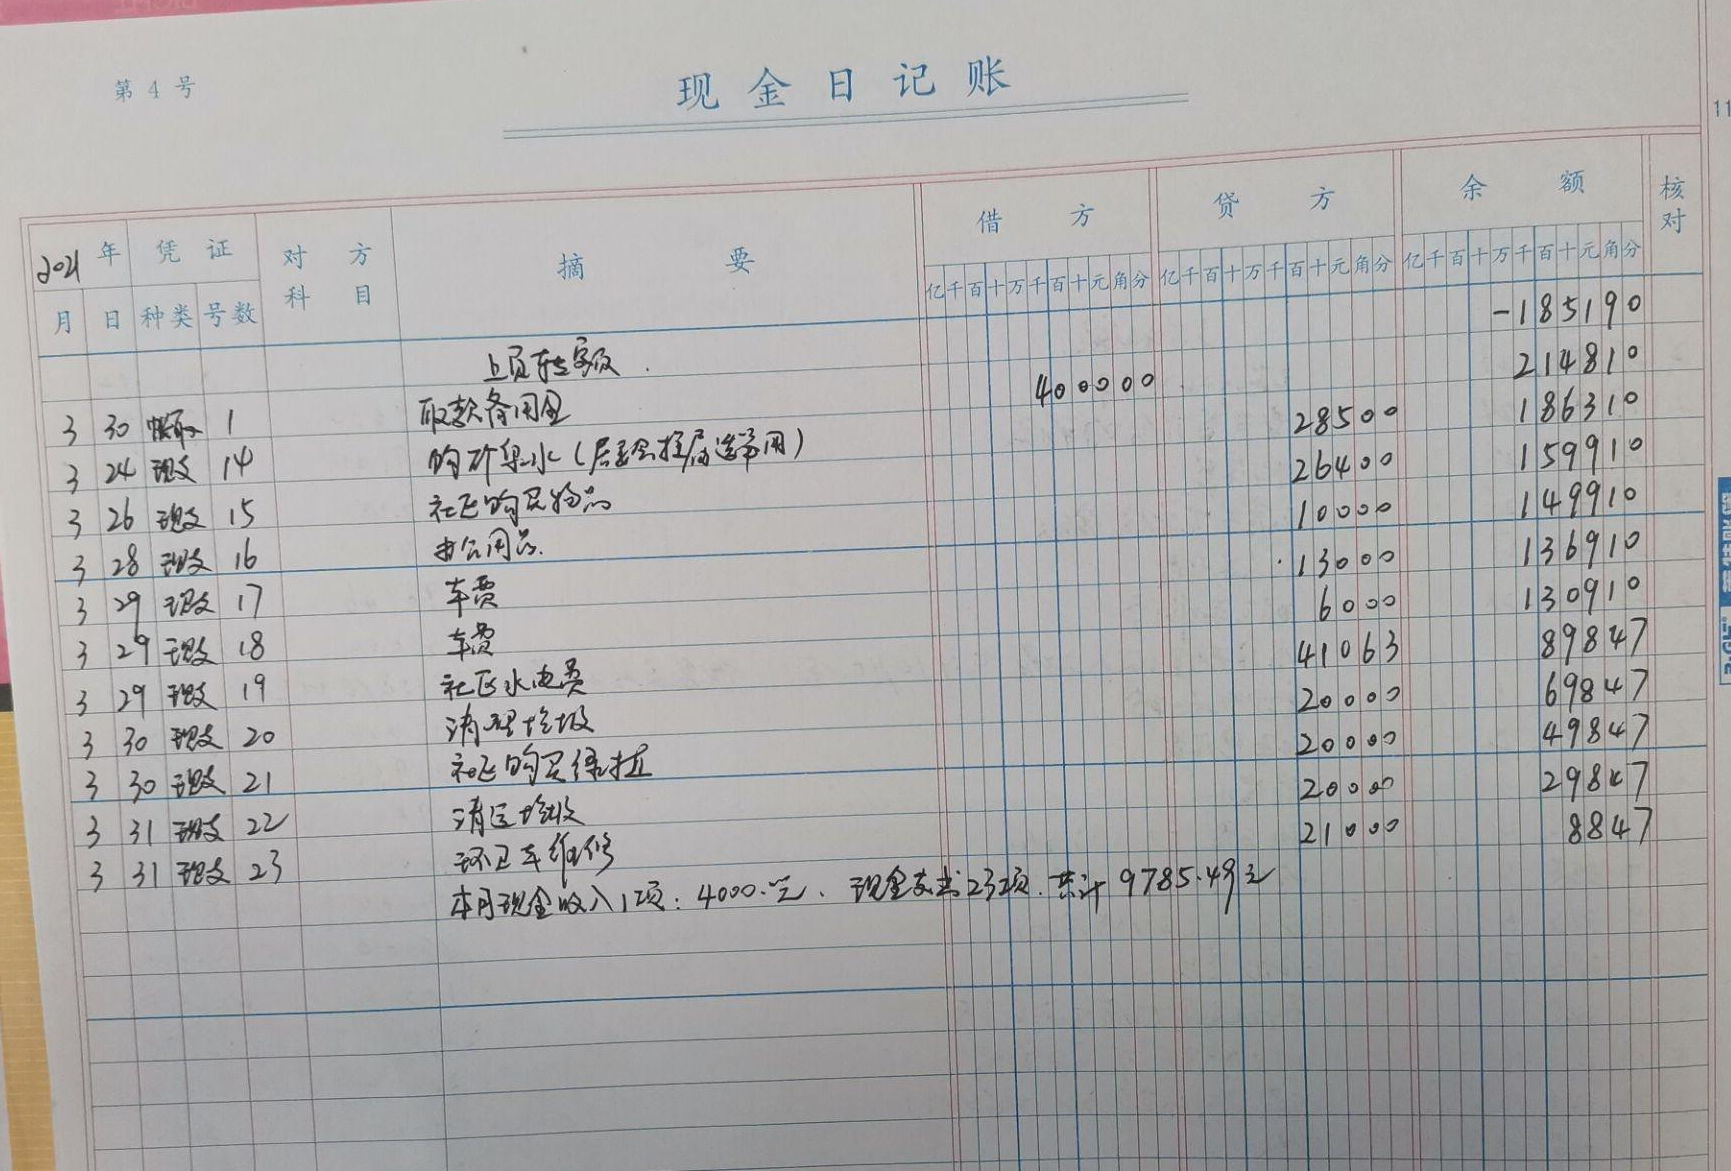 第 4 号
现金日记账
11
2021 年 凭证 对方 摘要 借方 贷方 余额 核对
月 日 种类 号数 科目 亿千百十万千百十元角分 亿千百十万千百十元角分 亿千百十万千百十元角分
上页转字及 -185190
3 30 1 取款备用金 400000 214810
3 24 现支 14 购矿泉水(居委会换届选举用) 28500 186310
3 26 现支 15 社区购买物品 26400 159910
3 28 现支 16 办公用品. 10000 149910
3 29 现支 17 车费 13000 136910
3 29 现支 18 车费 6000 130910
3 29 现支 19 社区水电费 41063 89847
3 30 现支 20 清理垃圾 20000 69847
3 30 现支 21 社区购买 20000 49847
3 31 现支 22 清运垃圾 20000 29847
3 31 现支 23 环卫车维修 21000 8847
本月现金收入1项: 4000.元. 现金支出23项.共计9785.49元